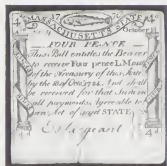 MASSACHUSETTS STATE
October 18
FOUR PENCE
This Bill entitles the Bearer
to receive Four pence L. Money
of the Treasury of this State
by the 18 of Octr. 1784 and shall
be received for that Sum in
all payments, agreeable to
an Act of said STATE.